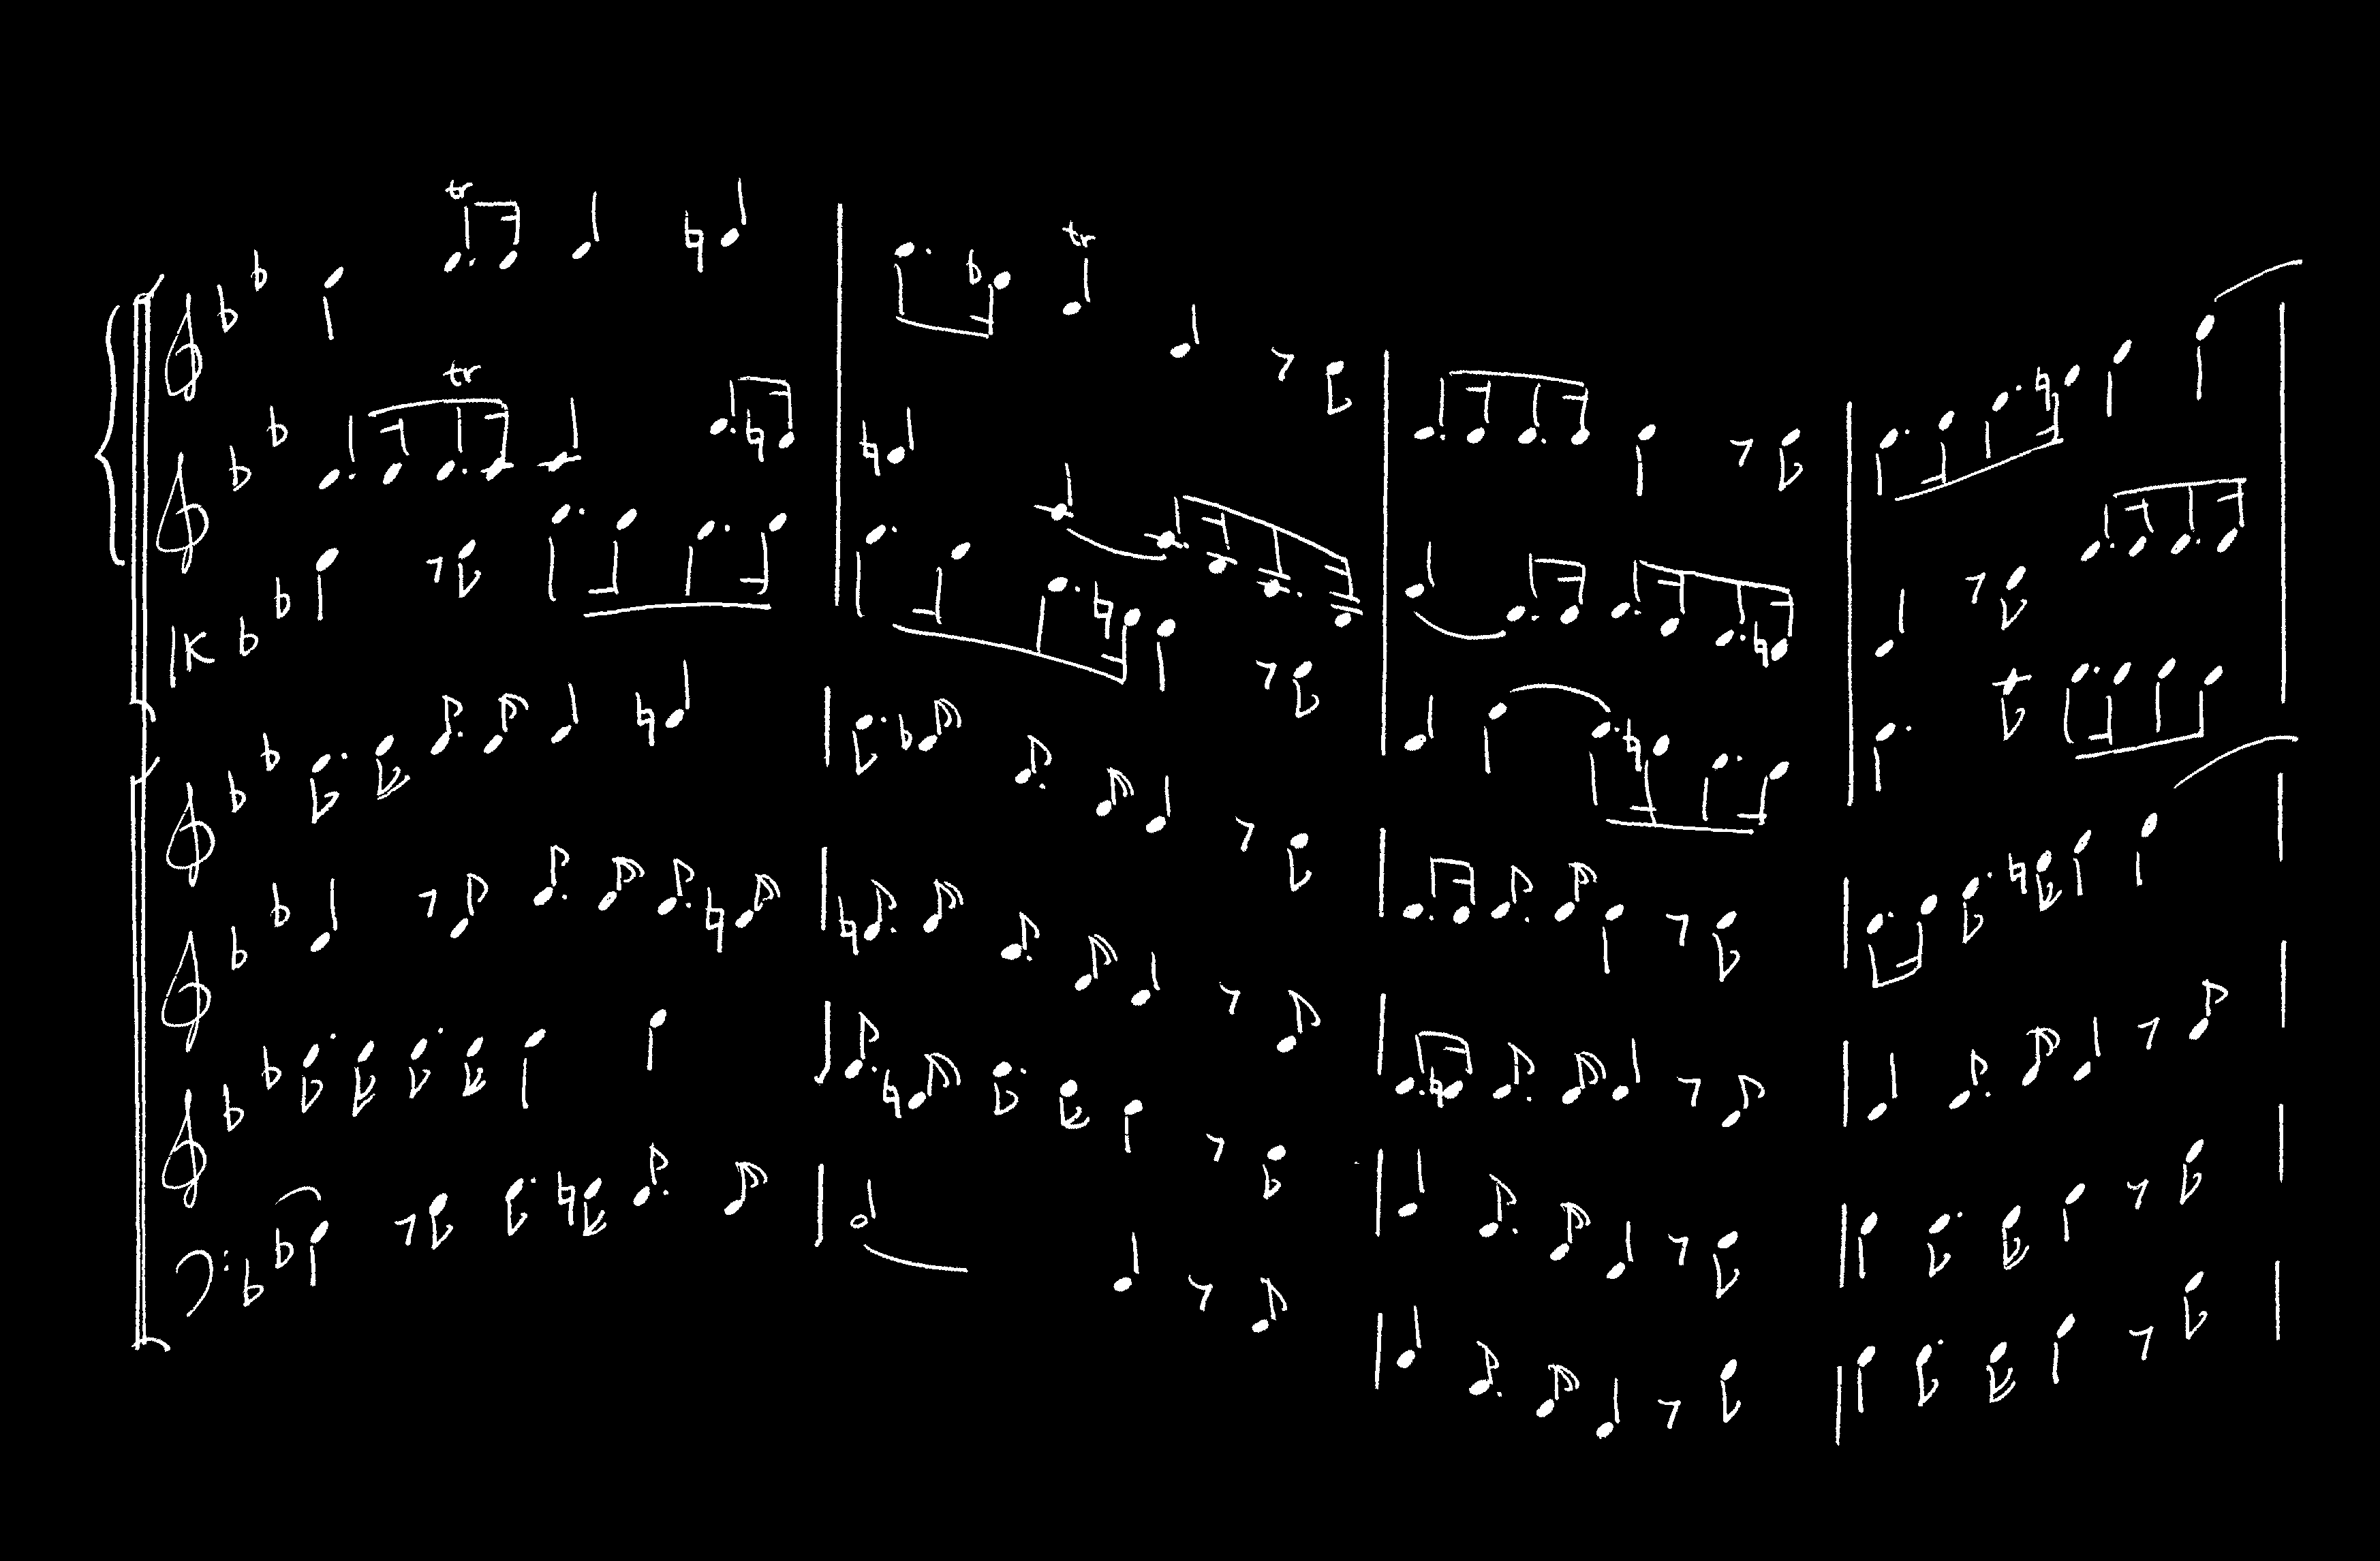 tr
tr
tr